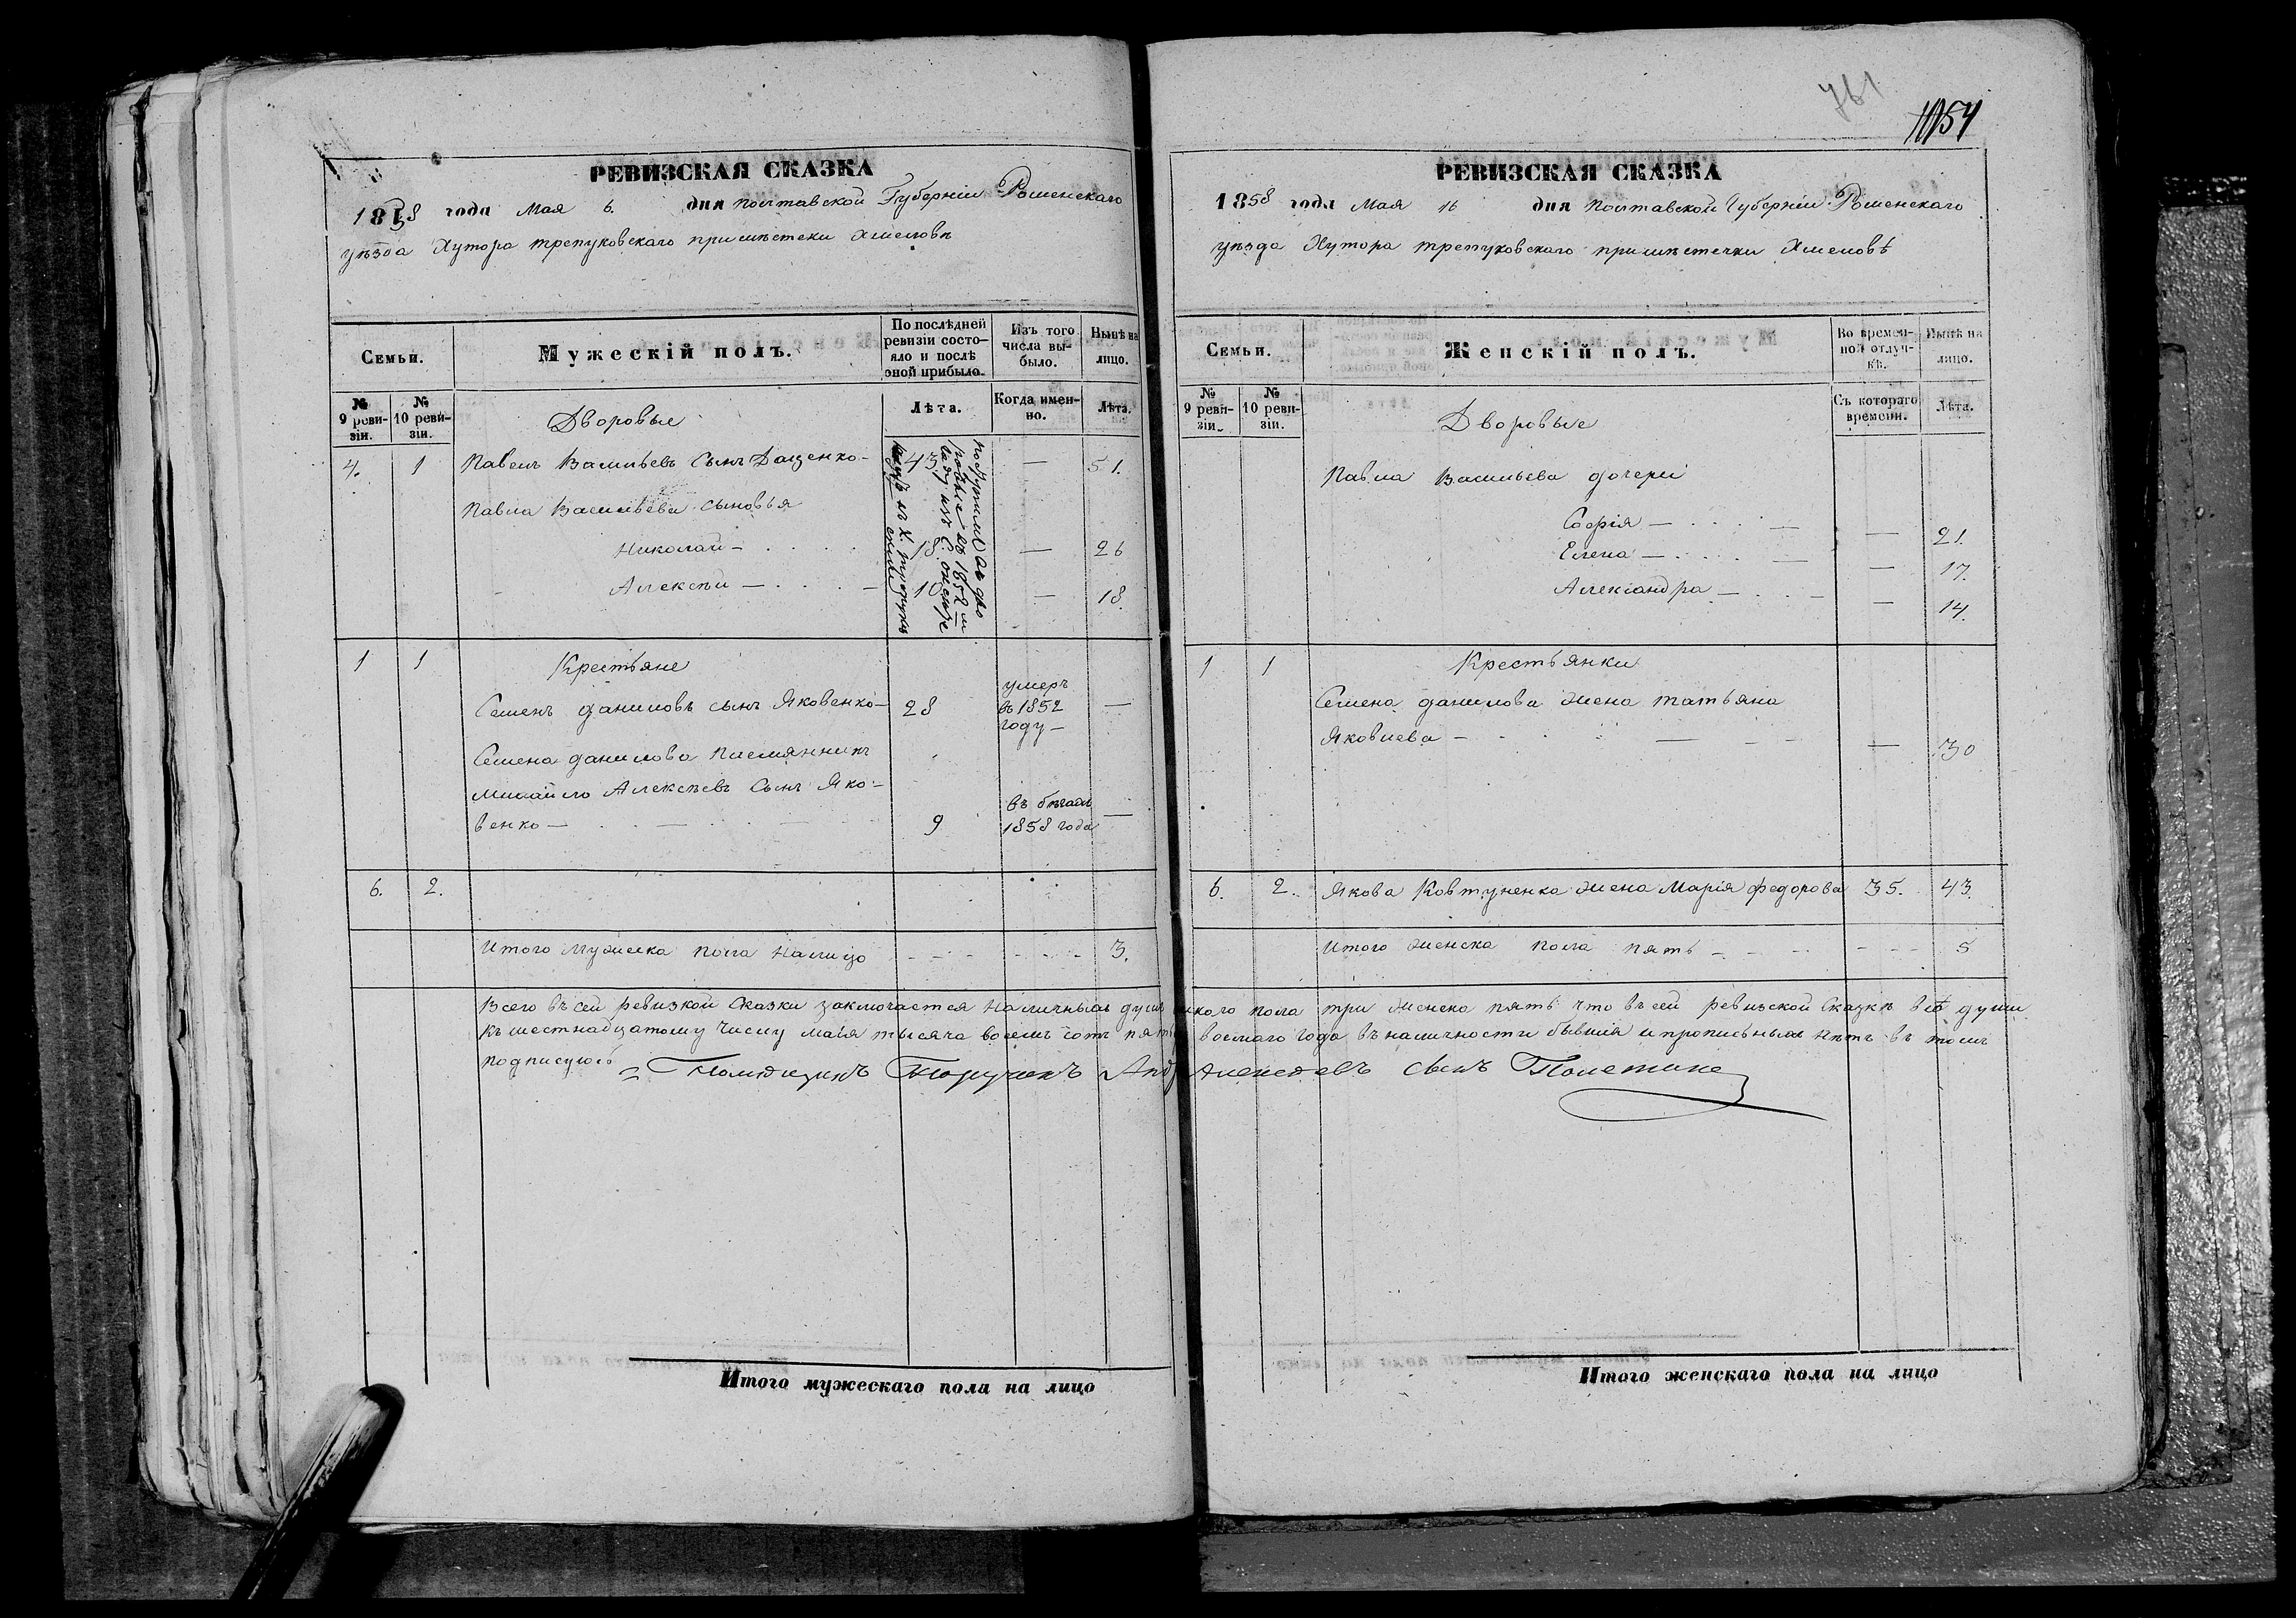 761
1054
РЕВИЗСКАЯ СКАЗКА
1858 года Мая 6. дня Полтавской Губерніи Роменскаго
уѣзда Хутора трепуковскаго примѣстеки Хмеловѣ
Семьи.
Мужескій полъ.
По послѣдней ревизіи состояло и послѣ оной прибыло.
Изъ того числа выбыло.
Нынѣ на лицо.
№ 9 ревизіи.
№ 10 ревизіи.
Лѣта.
Когда именно.
Лѣта.
Дворовые
4. 1 Павелъ Васильевъ Сынъ Даценко- 43 — 51.
Павла Васильева сыновья
Николай — 18 — 26
Алексѣй — 10 — 18.
1 1 Крестьяне
Семенъ даниловъ сынъ Яковенко — 28 умеръ въ 1852 году — —
Семена данилова племянникъ
Михайло Алексѣевъ Сынъ Яко-
венко — 9 въ бѣгахъ 1858 года —
6. 2.
Итого мужеска пола налицо - - - - - - 3.
РЕВИЗСКАЯ СКАЗКА
1858 года Мая 16 дня Полтавской Губерніи Роменскаго
уѣзда Хутора трепуковскаго примѣстечки Хмеловѣ
Семьи.
Женскій полъ.
Во временной отлучкѣ.
Нынѣ на лицо.
№ 9 ревизіи.
№ 10 ревизіи.
Съ котораго времени.
Лѣта.
Дворовые
Павла Васильева дочери
Софія — — 21.
Елена — — 17.
Александра — — 14.
1 1 Крестьянки
Семена данилова жена татьяна
Яковлева — — 30
6. 2. Якова Ковтуненка жена Марія федорова 35. 43.
Итого женска пола пять - - - 5
Всего въ сей ревизкой Сказки заключается наличныхъ душъ мужескаго пола три женска пять что въ сей ревизской Сказкѣ всѣ души
къ шестнадцатому числу маія тысяча восемъ сотъ пять восмаго года въ наличности бывшія и прописныхъ нѣтъ въ томъ
подписуюсь = Помѣщикъ Поручикъ Анд Алексѣевъ сынъ Полетика
Итого мужескаго пола на лицо
Итого женскаго пола на лицо